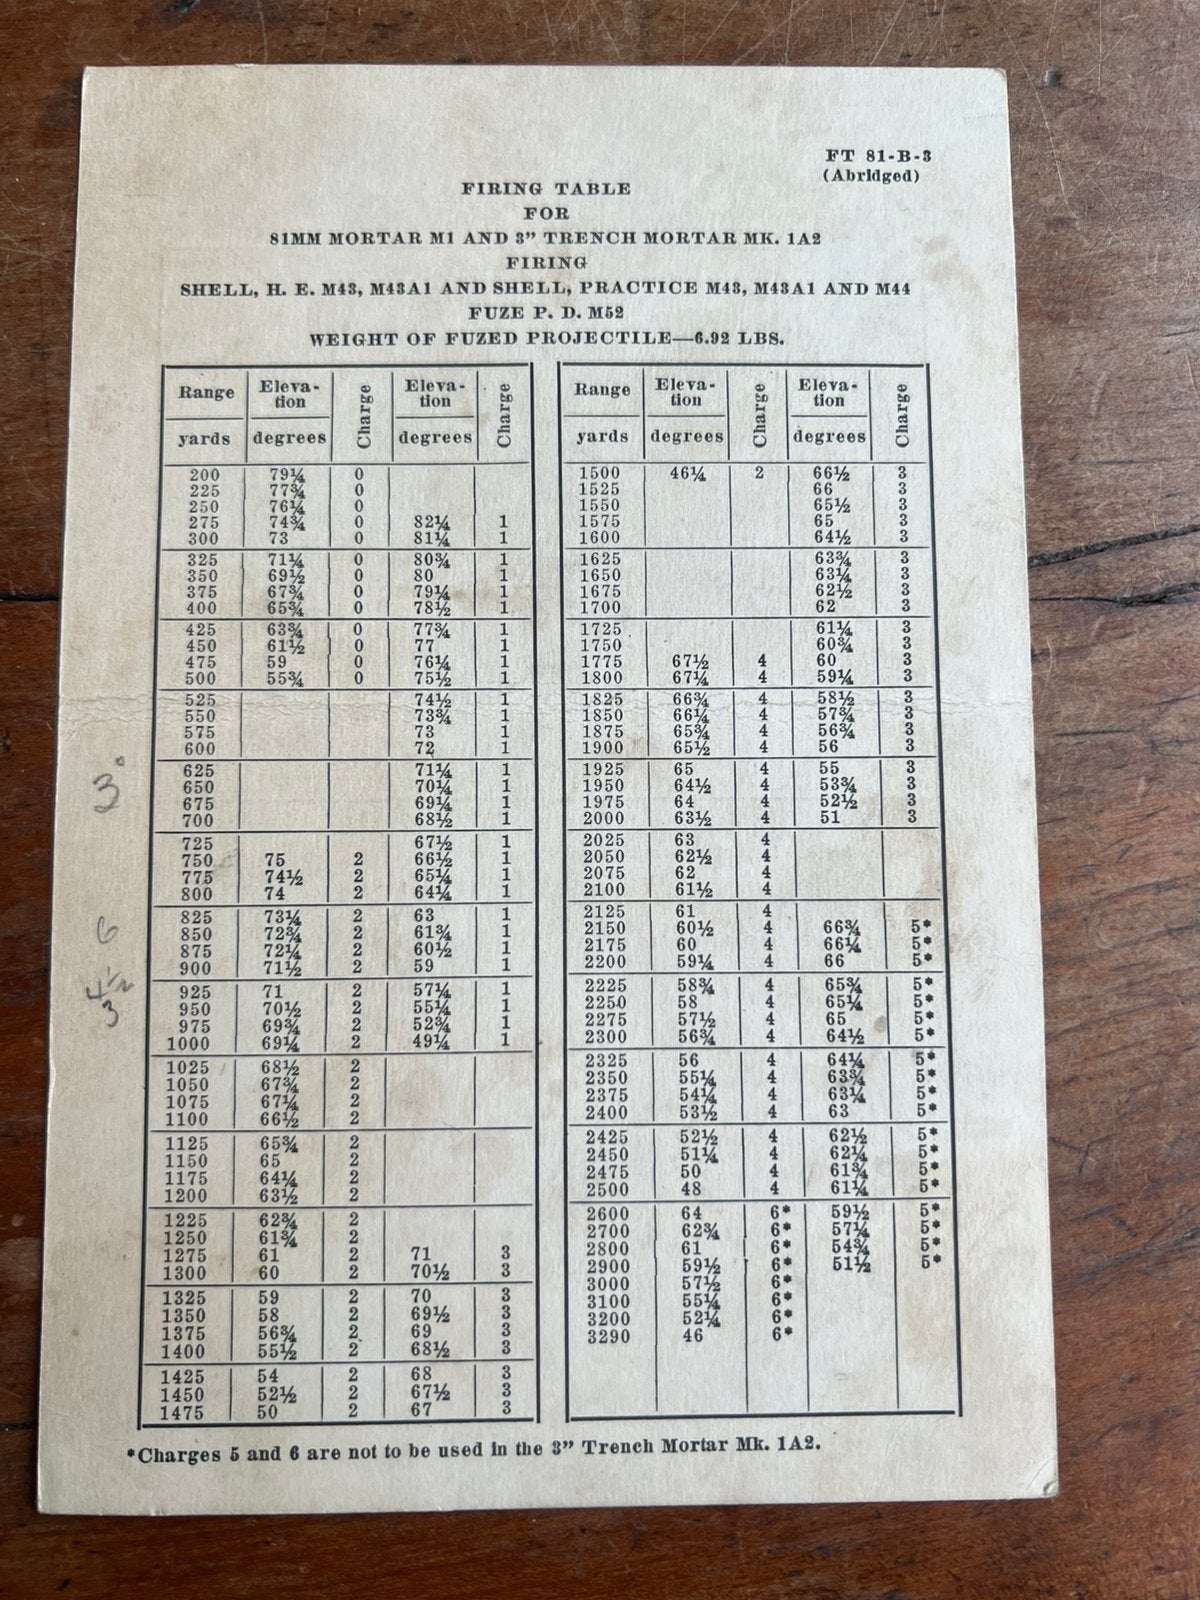 FT 81-B-3
(Abridged)
FIRING TABLE
FOR
81MM MORTAR M1 AND 3" TRENCH MORTAR MK. 1A2
FIRING
SHELL, H. E. M43, M43A1 AND SHELL, PRACTICE M43, M43A1 AND M44
FUZE P. D. M52
WEIGHT OF FUZED PROJECTILE—6.92 LBS.
Range Eleva- tion Charge Eleva- tion Charge
yards degrees degrees
200 79¼ 0
225 77¾ 0
250 76¼ 0
275 74¾ 0 82¼ 1
300 73 0 81¼ 1
325 71¼ 0 80¾ 1
350 69½ 0 80 1
375 67¾ 0 79¼ 1
400 65¾ 0 78½ 1
425 63¾ 0 77¾ 1
450 61½ 0 77 1
475 59 0 76¼ 1
500 55¾ 0 75½ 1
525 74½ 1
550 73¾ 1
575 73 1
600 72 1
625 71¼ 1
650 70¼ 1
675 69¼ 1
700 68½ 1
725 67½ 1
750 75 2 66½ 1
775 74½ 2 65¼ 1
800 74 2 64¼ 1
825 73¼ 2 63 1
850 72¾ 2 61¾ 1
875 72¼ 2 60½ 1
900 71½ 2 59 1
925 71 2 57¼ 1
950 70½ 2 55¼ 1
975 69¾ 2 52¾ 1
1000 69¼ 2 49¼ 1
1025 68½ 2
1050 67¾ 2
1075 67¼ 2
1100 66½ 2
1125 65¾ 2
1150 65 2
1175 64¼ 2
1200 63½ 2
1225 62¾ 2
1250 61¾ 2
1275 61 2 71 3
1300 60 2 70½ 3
1325 59 2 70 3
1350 58 2 69½ 3
1375 56¾ 2 69 3
1400 55½ 2 68½ 3
1425 54 2 68 3
1450 52½ 2 67½ 3
1475 50 2 67 3
Range Eleva- tion Charge Eleva- tion Charge
yards degrees degrees
1500 46¼ 2 66½ 3
1525 66 3
1550 65½ 3
1575 65 3
1600 64½ 3
1625 63¾ 3
1650 63¼ 3
1675 62½ 3
1700 62 3
1725 61¼ 3
1750 60¾ 3
1775 67½ 4 60 3
1800 67¼ 4 59¼ 3
1825 66¾ 4 58½ 3
1850 66¼ 4 57¾ 3
1875 65¾ 4 56¾ 3
1900 65½ 4 56 3
1925 65 4 55 3
1950 64½ 4 53¾ 3
1975 64 4 52½ 3
2000 63½ 4 51 3
2025 63 4
2050 62½ 4
2075 62 4
2100 61½ 4
2125 61 4
2150 60½ 4 66¾ 5*
2175 60 4 66¼ 5*
2200 59¼ 4 66 5*
2225 58¾ 4 65¾ 5*
2250 58 4 65¼ 5*
2275 57½ 4 65 5*
2300 56¾ 4 64½ 5*
2325 56 4 64¼ 5*
2350 55¼ 4 63¾ 5*
2375 54¼ 4 63¼ 5*
2400 53½ 4 63 5*
2425 52½ 4 62½ 5*
2450 51¼ 4 62¼ 5*
2475 50 4 61¾ 5*
2500 48 4 61¼ 5*
2600 64 6* 59½ 5*
2700 62¾ 6* 57¼ 5*
2800 61 6* 54¾ 5*
2900 59½ 6* 51½ 5*
3000 57½ 6*
3100 55¼ 6*
3200 52¼ 6*
3290 46 6*
3°
6
4½
3
*Charges 5 and 6 are not to be used in the 3" Trench Mortar Mk. 1A2.